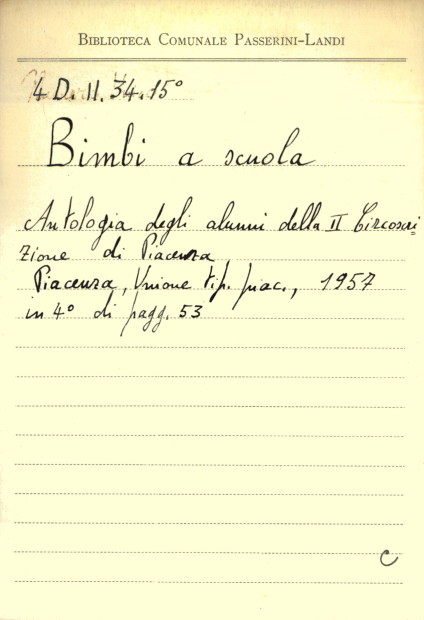 BIBLIOTECA COMUNALE PASSERINI-LANDI
4 D. II. 34. 15°
Bimbi a scuola
Antologia degli alunni della II Circoscri=
zione di Piacenza
Piacenza, Unione tip. piac., 1957
in 4° di pagg. 53
C